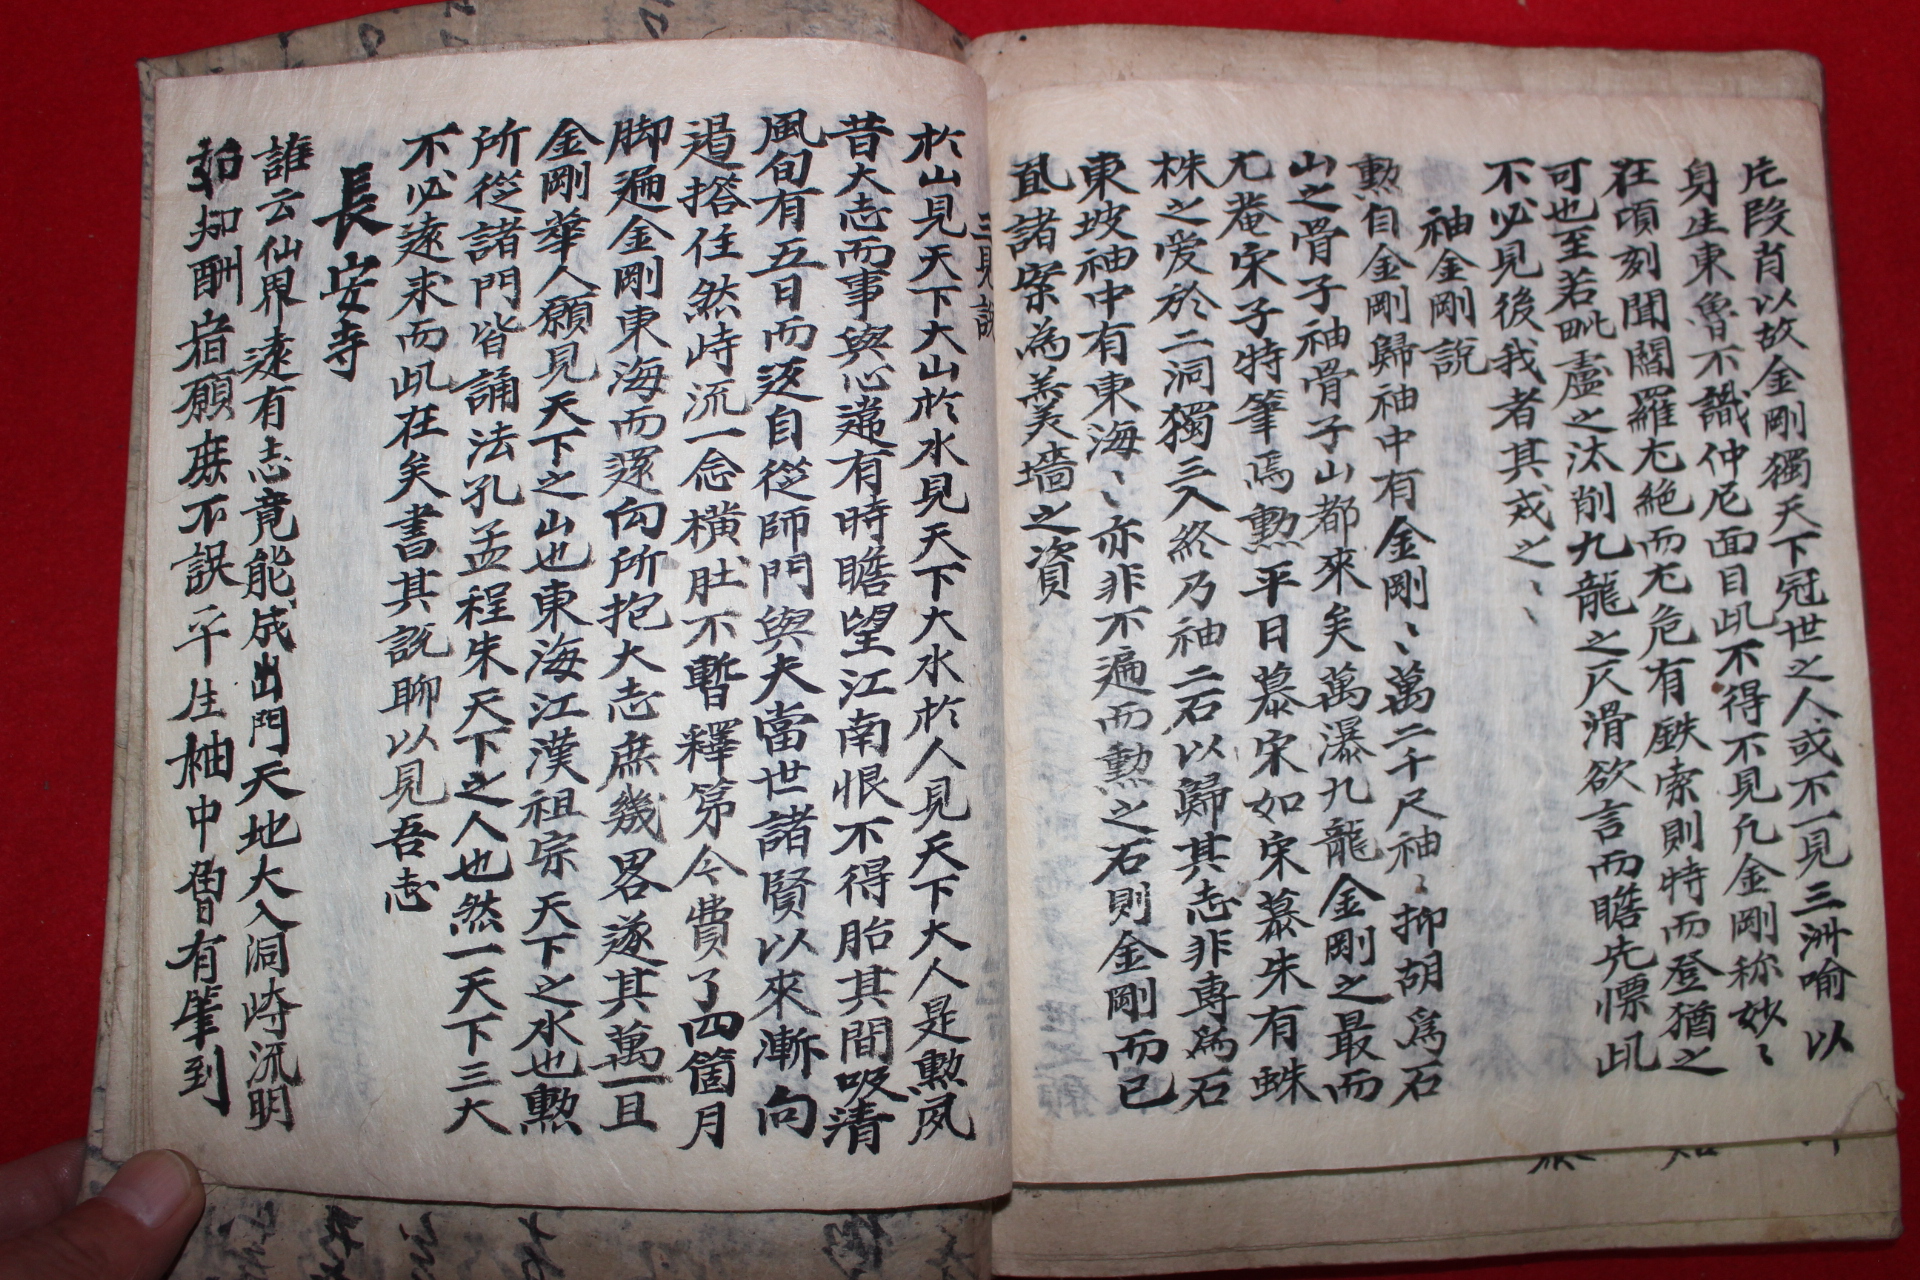 片段肯以故金剛獨天下冠世之人或不一見三洲喻以
身生東魯不識仲尼面目此不得不見凡金剛称妙〻
在頃刻聞閻羅尤絶而尤危有鉄索則特而登猶之
可也至若毗盧之汰削九龍之仄滑欲言而瞻先慓此
不必見後我者其戒之〻〻
袖金剛說
勲自金剛歸袖中有金剛〻萬二千尺袖〻抑胡爲石
山之骨子袖骨子山都來矣萬瀑九龍金剛之最而
尤菴宋子特筆焉勲平日慕宋如宋慕朱有蛛
株之爱於二洞獨三入終乃袖二石以歸其志非専為石
東坡袖中有東海〻亦非不遍而勲之石則金剛而已
眞諸案為羔美墻之資
三見說
於山見天下大山於水見天下大水於人見天下大人是勲夙
昔大志而事與心違有時瞻望江南恨不得胎其間吸清
風旬有五日而返自從師門與夫當世諸賢以來漸向
過搭住然峙流一念横肚不暫釋第今費了四箇月
脚遍金剛東海而還向所抱大志庶幾畧遂其萬一且
金剛華人願見天下之山也東海江漢祖宗天下之水也勲
所從諸門皆誦法孔孟程朱天下之人也然一天下三大
不必遠求而此在矣書其說聊以見吾志
長安寺
誰云仙界遠有志竟能成出門天地大入洞峙流明
始知酬宿願庶不誤平生袖中曾有肇到